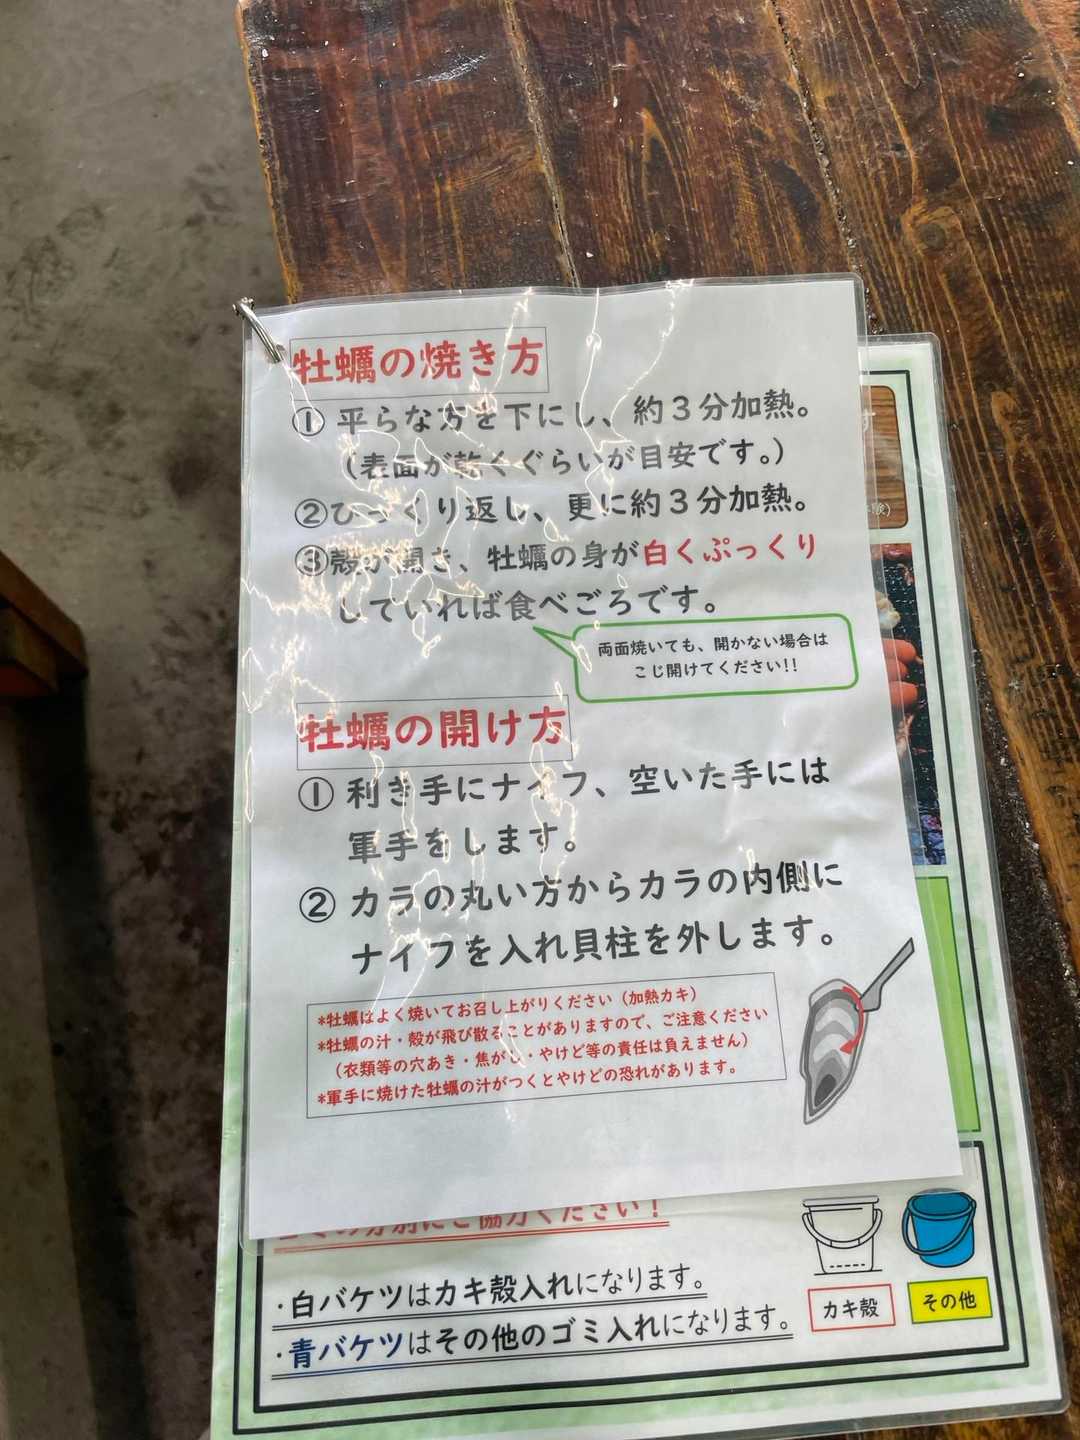 牡蠣の焼き方
① 平らな方を下にし、約3分加熱。
（表面が乾くぐらいが目安です。）
②ひっくり返し、更に約3分加熱。
③殻が開き、牡蠣の身が白くぷっくり
していれば食べごろです。
両面焼いても、開かない場合は
こじ開けてください!!
牡蠣の開け方
① 利き手にナイフ、空いた手には
軍手をします。
② カラの丸い方からカラの内側に
ナイフを入れ貝柱を外します。
*牡蠣はよく焼いてお召し上がりください（加熱カキ）
*牡蠣の汁・殻が飛び散ることがありますので、ご注意ください
（衣類等の穴あき・焦がし・やけど等の責任は負えません）
*軍手に焼けた牡蠣の汁がつくとやけどの恐れがあります。
ゴミの分別にご協力ください！
・白バケツはカキ殻入れになります。
・青バケツはその他のゴミ入れになります。
カキ殻
その他